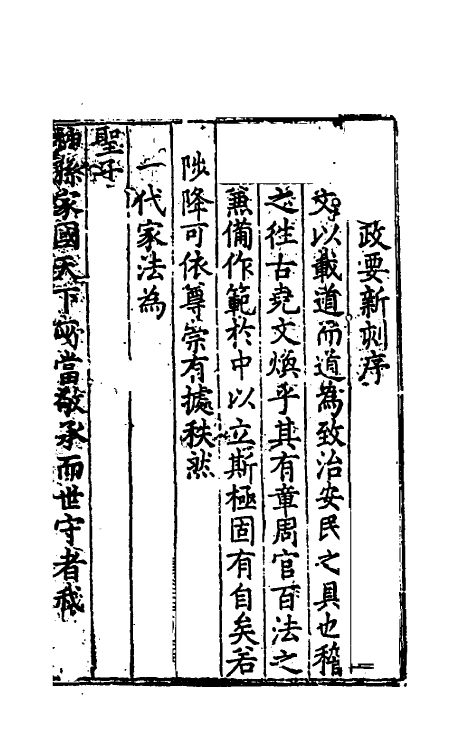 政要新刻序
文以載道而道為致治安民之具也稽
之徃古堯文煥乎其有章周官百法之
兼備作範於中以立斯極固有自矣若
陟降可依尊崇有據秩然
一代家法為
聖子
神孫家國天下寳當敬承而世守者哉